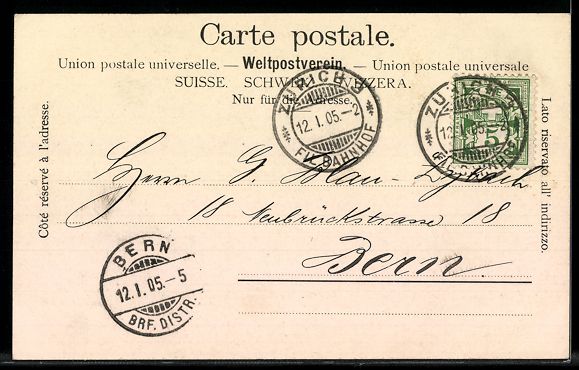 Carte postale.
Union postale universelle. — Weltpostverein. — Unione postale universale
SUISSE. SCHWEIZ. SVIZZERA.
Nur für die Adresse.
Côté réservé à l'adresse.
Lato riservato all' indirizzo.
ZÜRICH 3
12.I.05.–2
FIL. BAHNHOF
ZÜRICH 3
12.I.05.
5
Herrn G. Blau-
18 Neubrückstrasse 18
Bern.
BERN
12.I.05.–5
BRF. DISTR.